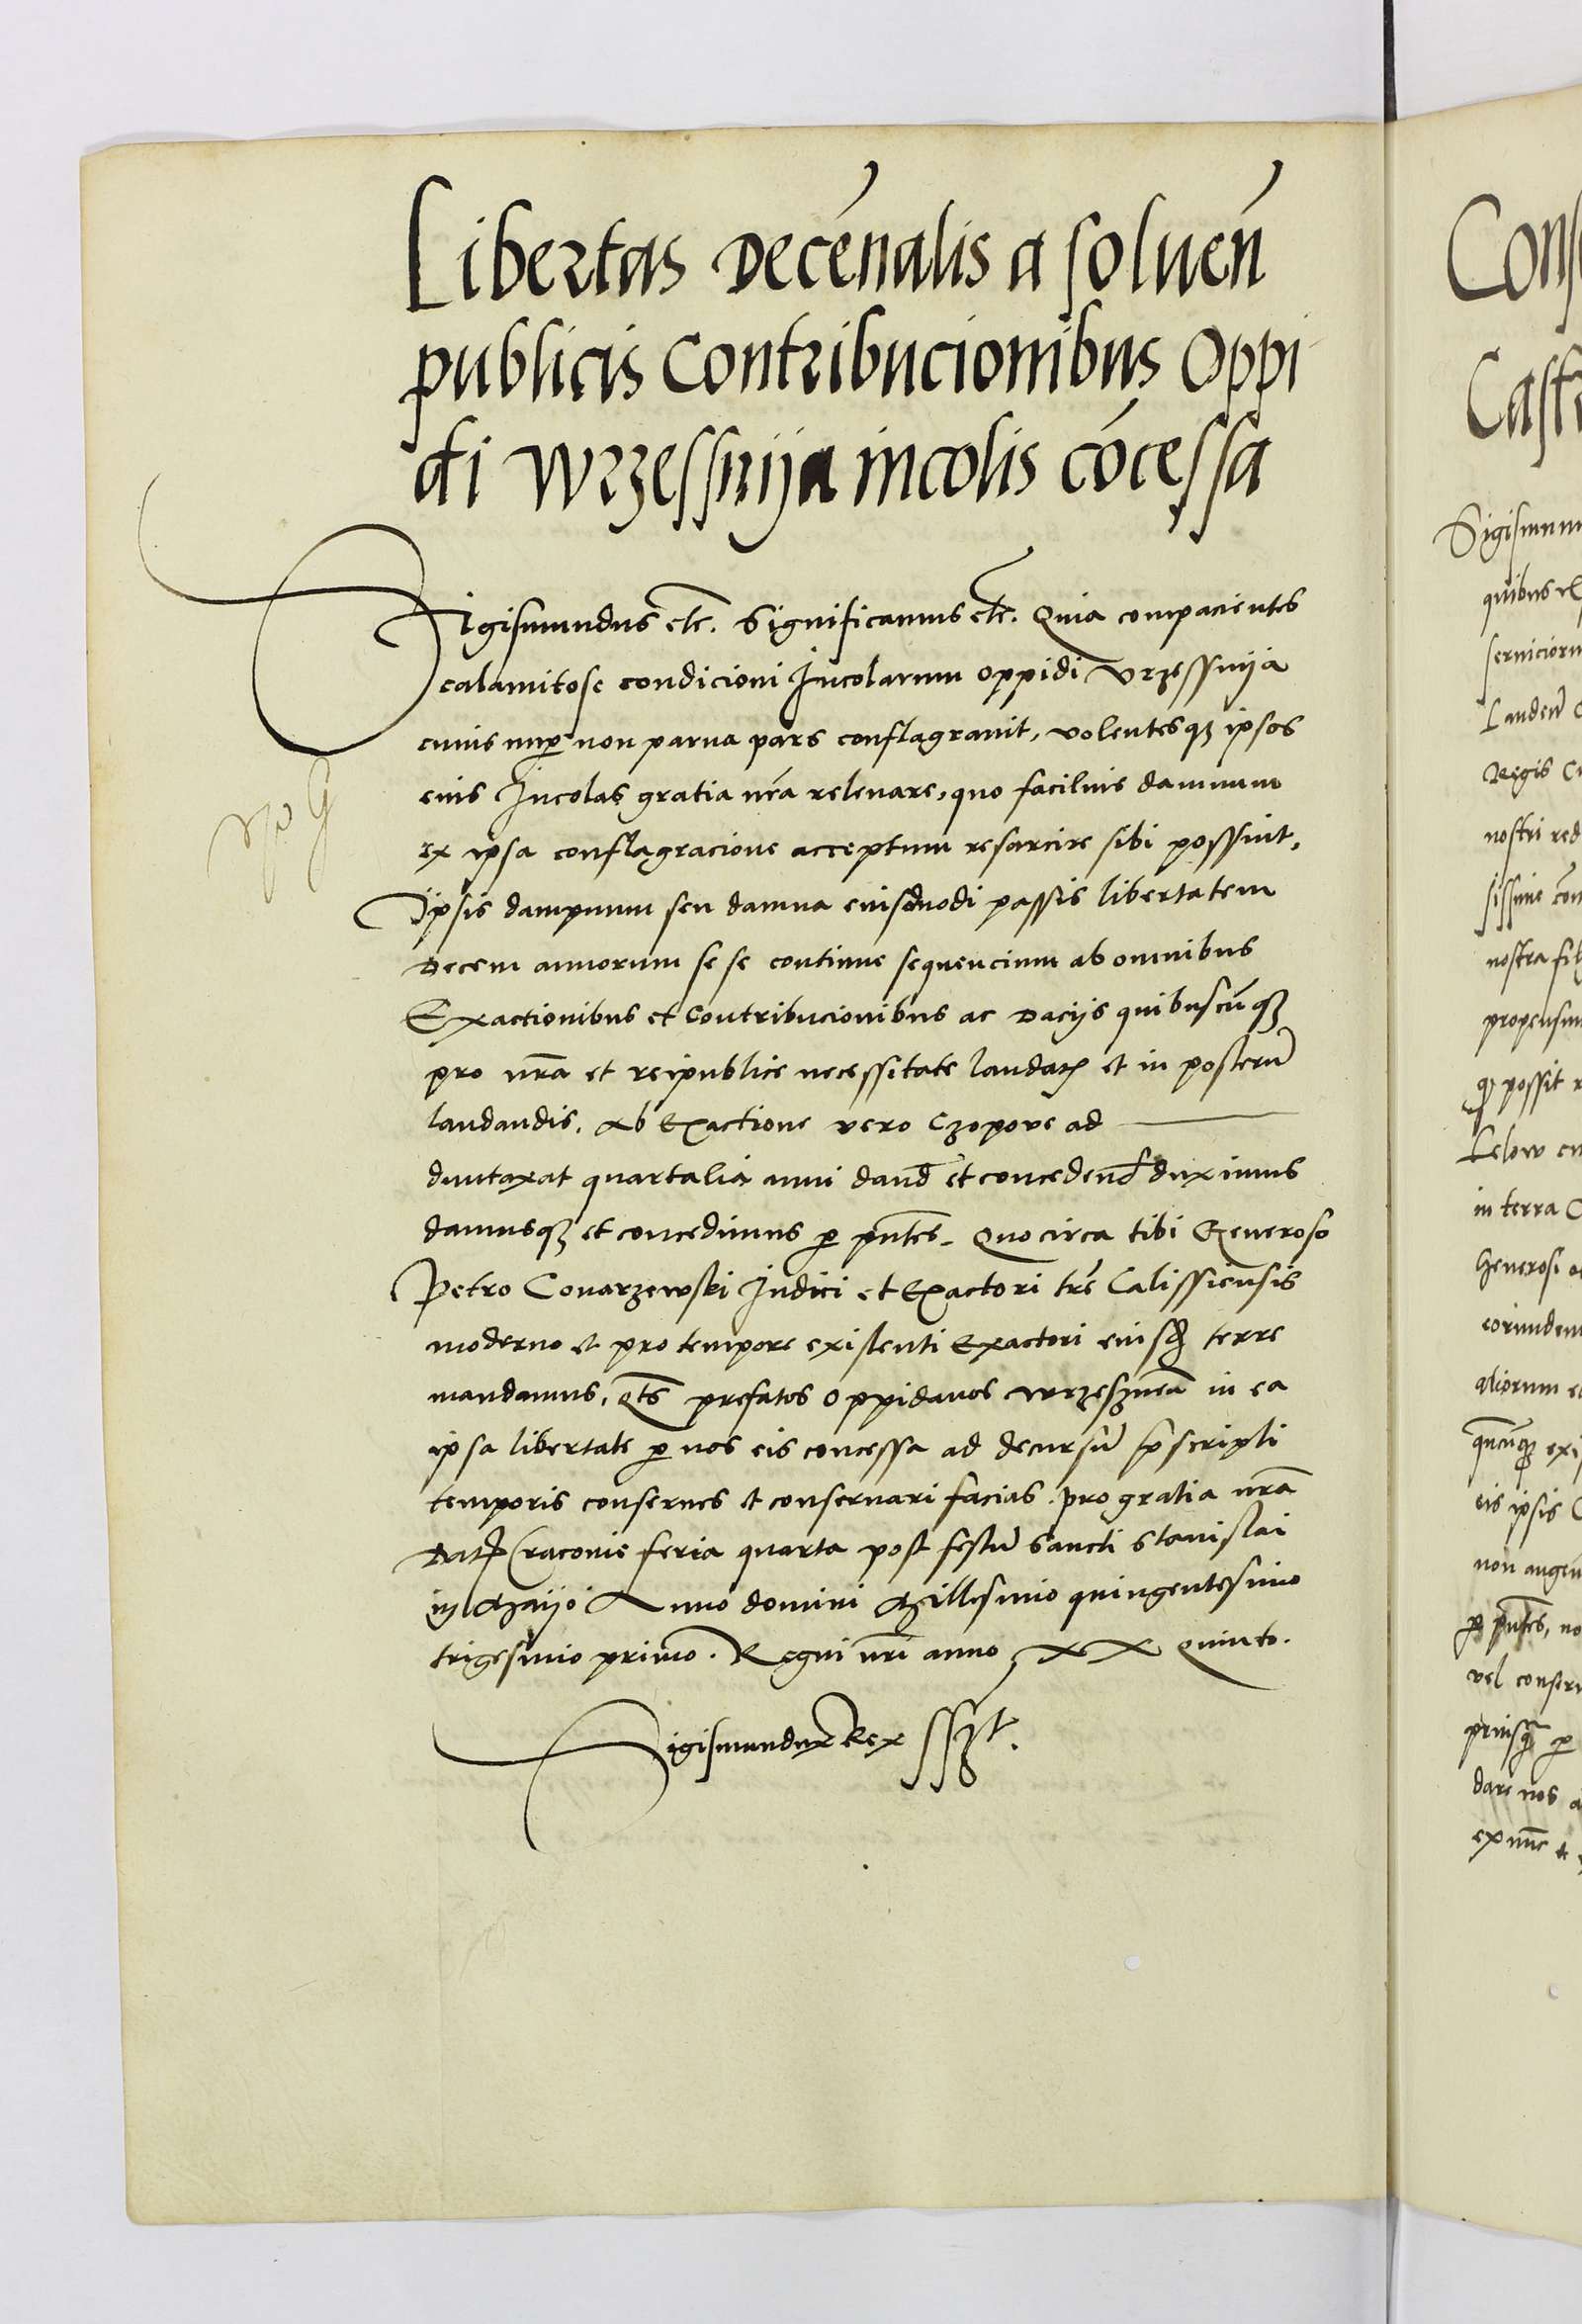 Libertas Decēnalis a soluen̄
publicis Contribucionibus Oppi
di Wrzessnija incolis cōcessa
Sigismundus etc. Significamus etc. Quia compacientes
calamitose condicioni Incolarum oppidi Vrzessnija
cuius nup̱ non parua pars conflagrauit, volentesqꝫ ipsos
eius Incolas gratia nr̄a releuare, quo facilius damnum
ex ipsa conflagracione acceptum resarcire sibi possint,
Ipsis dampnum seu damna eiusdmodi passis libertatem
Decem annorum se se continue sequencium ab omnibus
Exactionibus et Contribucionibus ac Dacijs quibuscūqꝫ
pro nr̄a et reipublice necessitate laudatꝭ et in posterū
laudandis. Ab Exactione vero Czopove ad
duntaxat quartalia anni dand̄ et concedend̄ duximus
damusqꝫ et concedimus ꝑ pn̄tes. Quocirca tibi Generoso
Petro Conarzewski Iudici et Exactori tr̄e Calissiensis
moderno et pro tempore existenti Exactori eiusdꝫ terre
mandamus, qt̄s prefatos oppidanos Wrzesznen̄ in ea
ipsa libertate ꝑ nos eis concessa ad decursū p̄scripti
temporis conserues et conseruari facias. pro gratia nr̄a
Datꝭ Cracouie feria quarta post festū Sancti Stanislai
in Maijo Anno domini Millesimo quingentesimo
trigesimo primo. Regni nr̄i anno XX Quinto.
Sigismundus Rex sszt.
Cons
Cast
Sigismun
quibus
seruicioru
Regis
nostri red
nostra
propensiu
possit
Lelow
in terra
Generosi
eorundem
aliorum
eis ipsis
non augen
ꝑ pn̄tes, no
vel conseru
dare nos